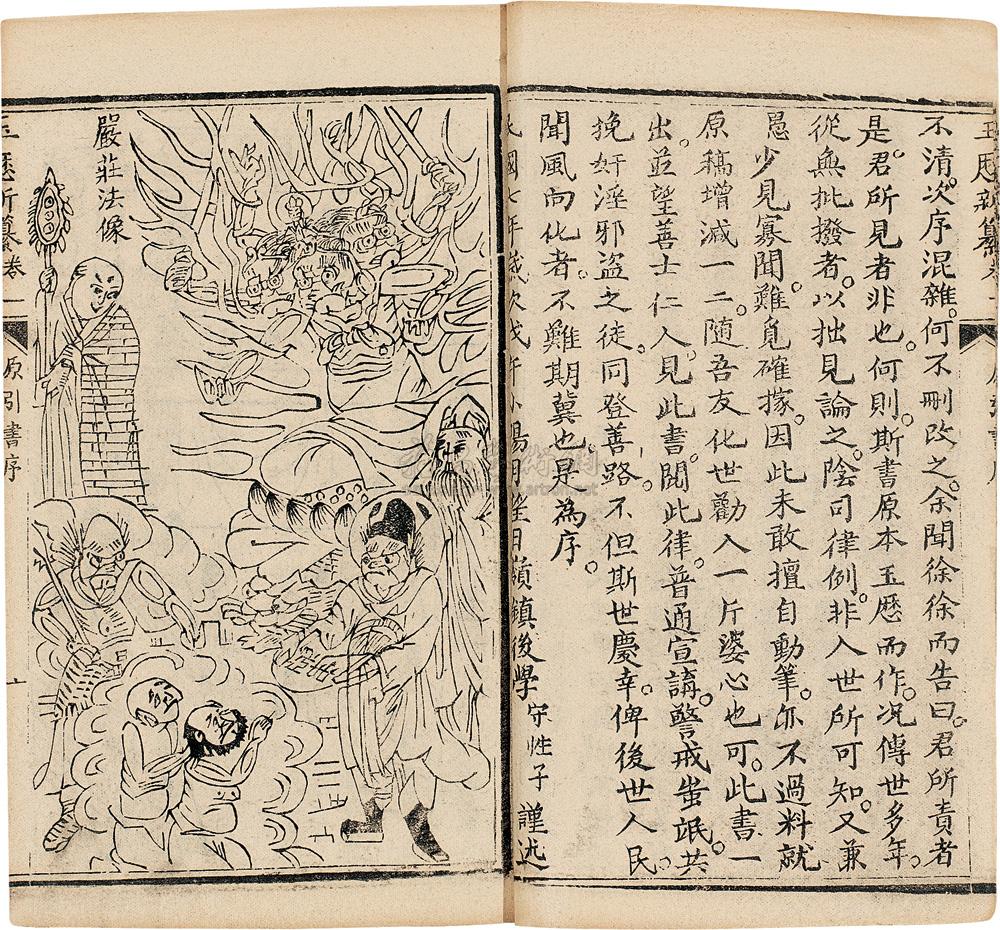 不清。次序混雜。何不刪改之。余聞徐徐而告曰。君所責者
是。君所見者非也。何則。斯書原本玉歷而作。况傳世多年。
從無批撥者。以拙見論之。陰司律例。非人世所可知。又兼
愚少見寡聞。難覓確據。因此未敢擅自動筆。亦不過料就
原稿增減一二。隨吾友化世勸人一片婆心也可。此書一
出。並望善士仁人。見此書。閱此律。普通宣講。警戒蚩氓。共
挽奸淫邪盜之徒。同登善路。不但斯世慶幸。俾後世人民。
聞風向化者。不難期冀也。是為序。
民國七年歲次戊午小陽月望日 鎮後學守性子謹述
嚴莊法像
玉歷新纂卷一
原引書序